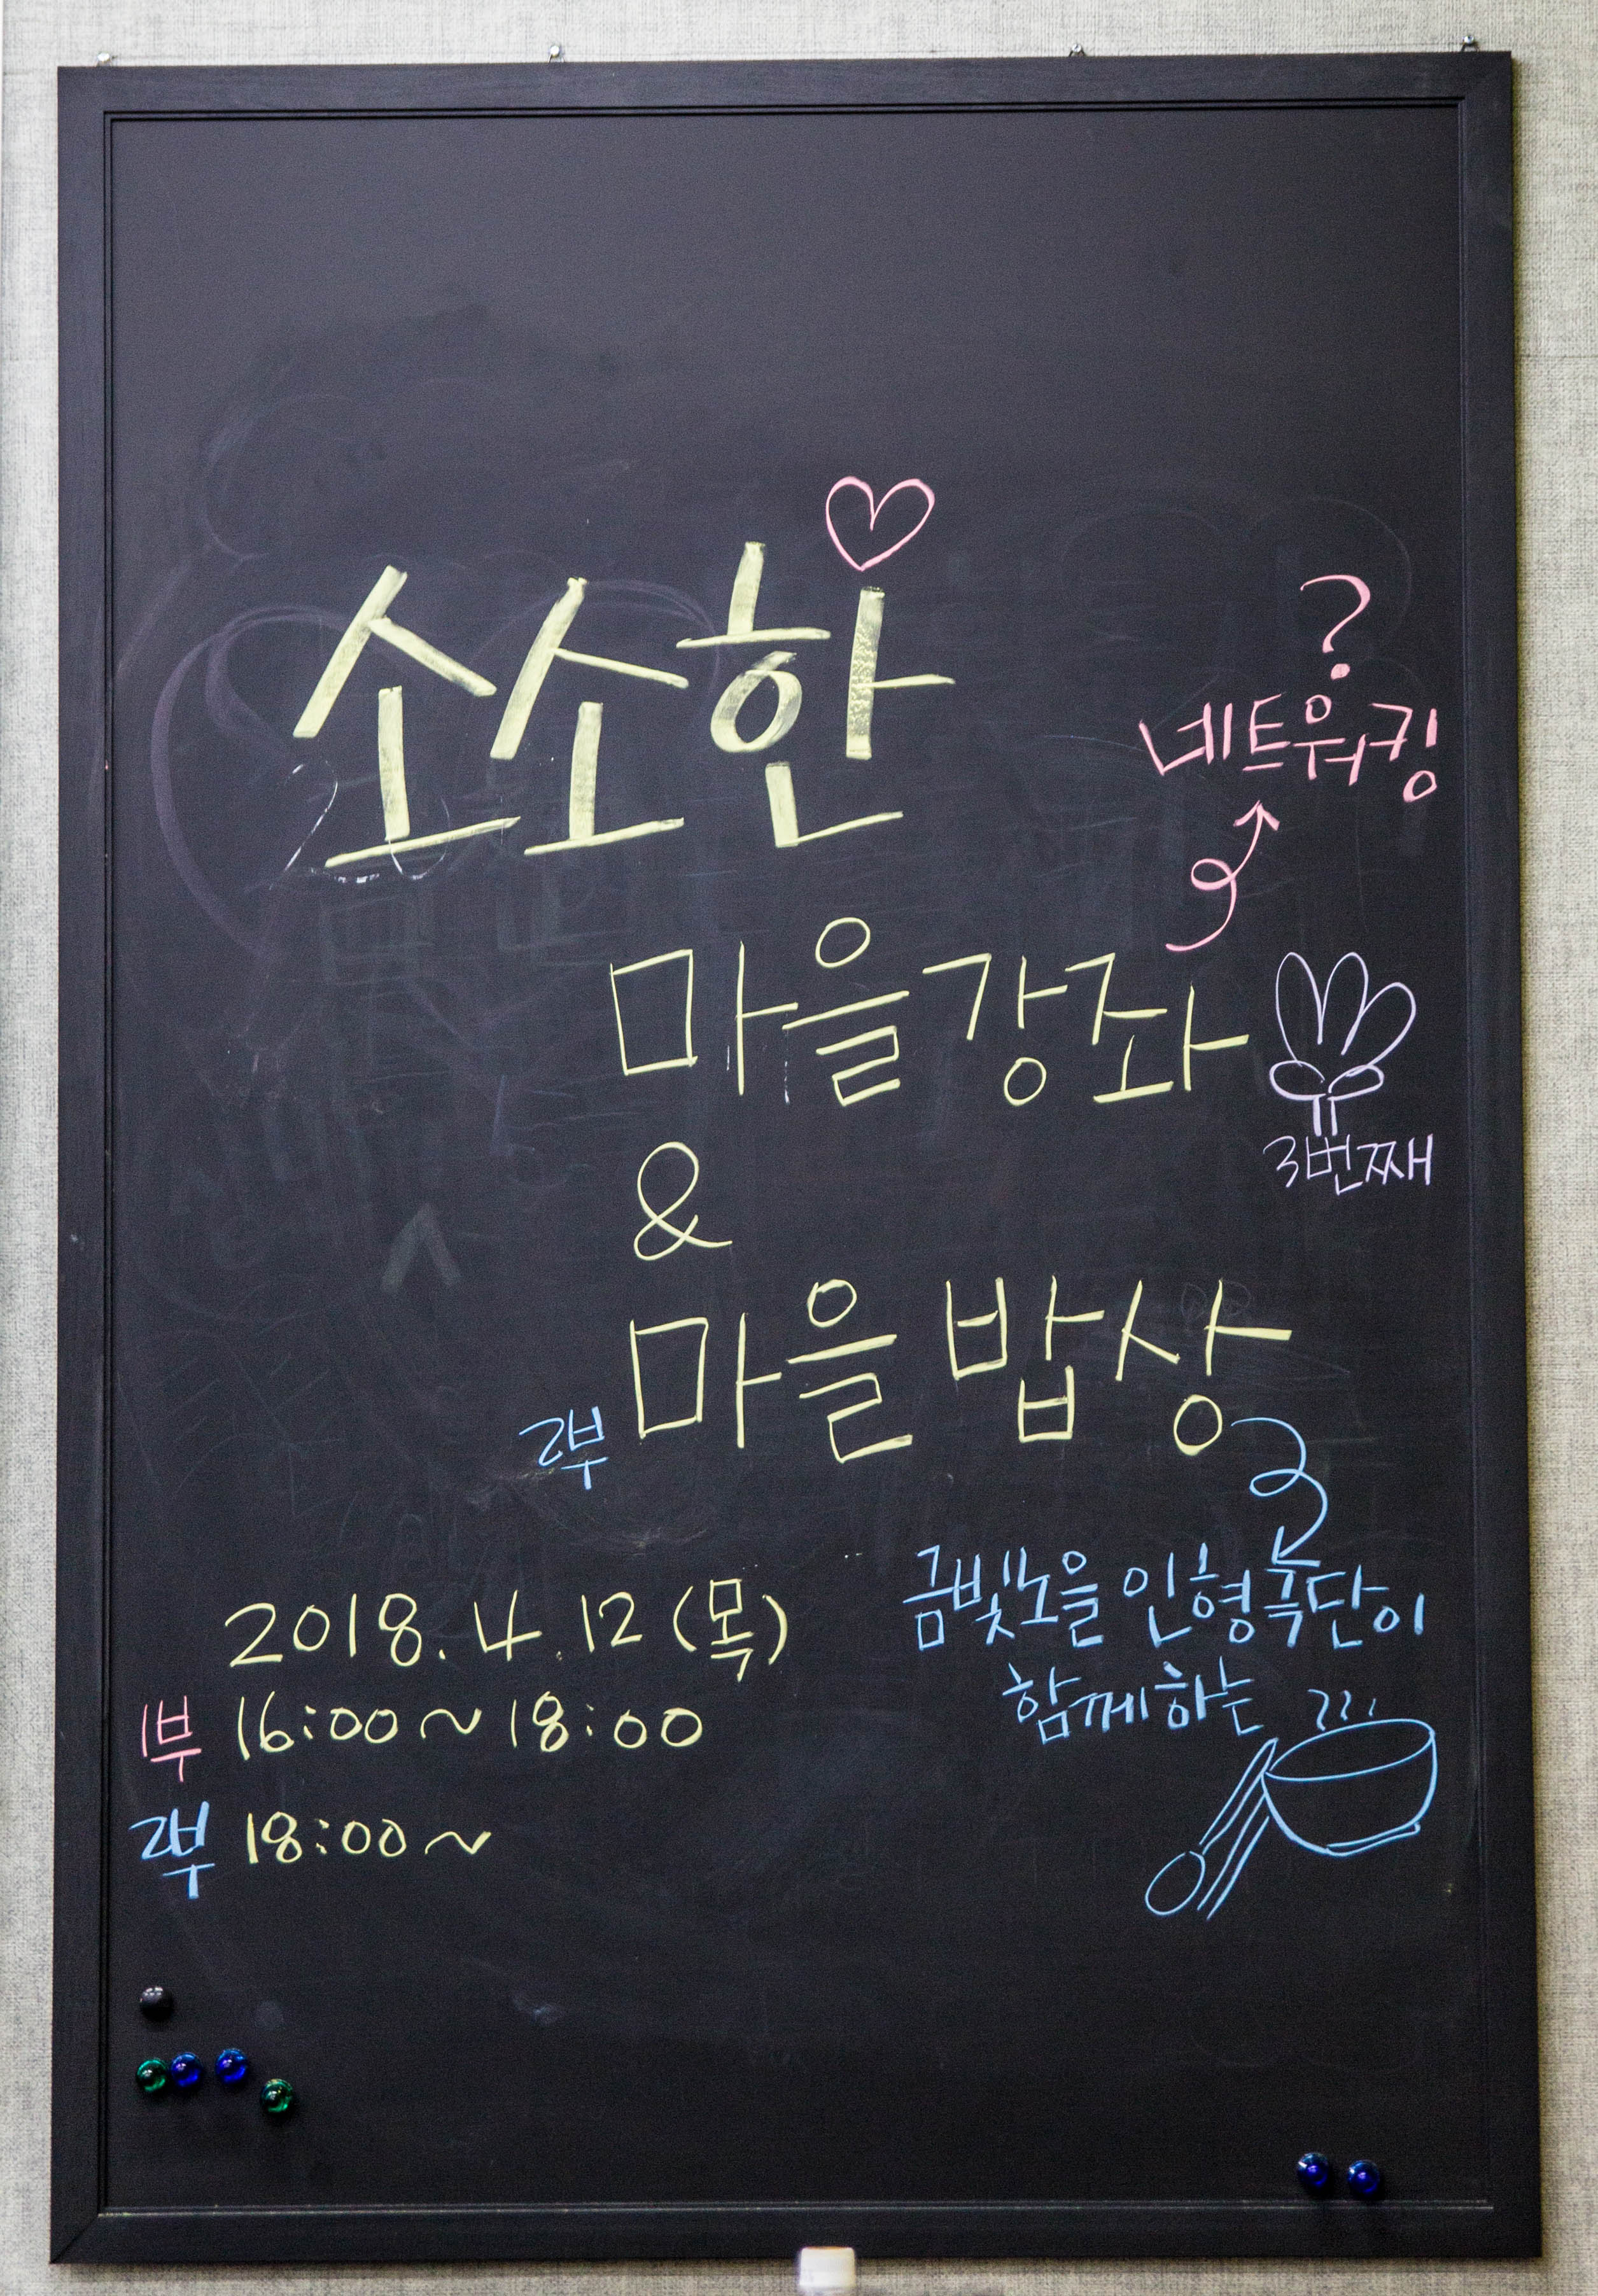 소소한
?
네트워킹
마을강좌
3번째
&
2부 마을 밥상
금빛노을 인형극단이
함께하는
2018.4.12(목)
1부 16:00~18:00
2부 18:00~